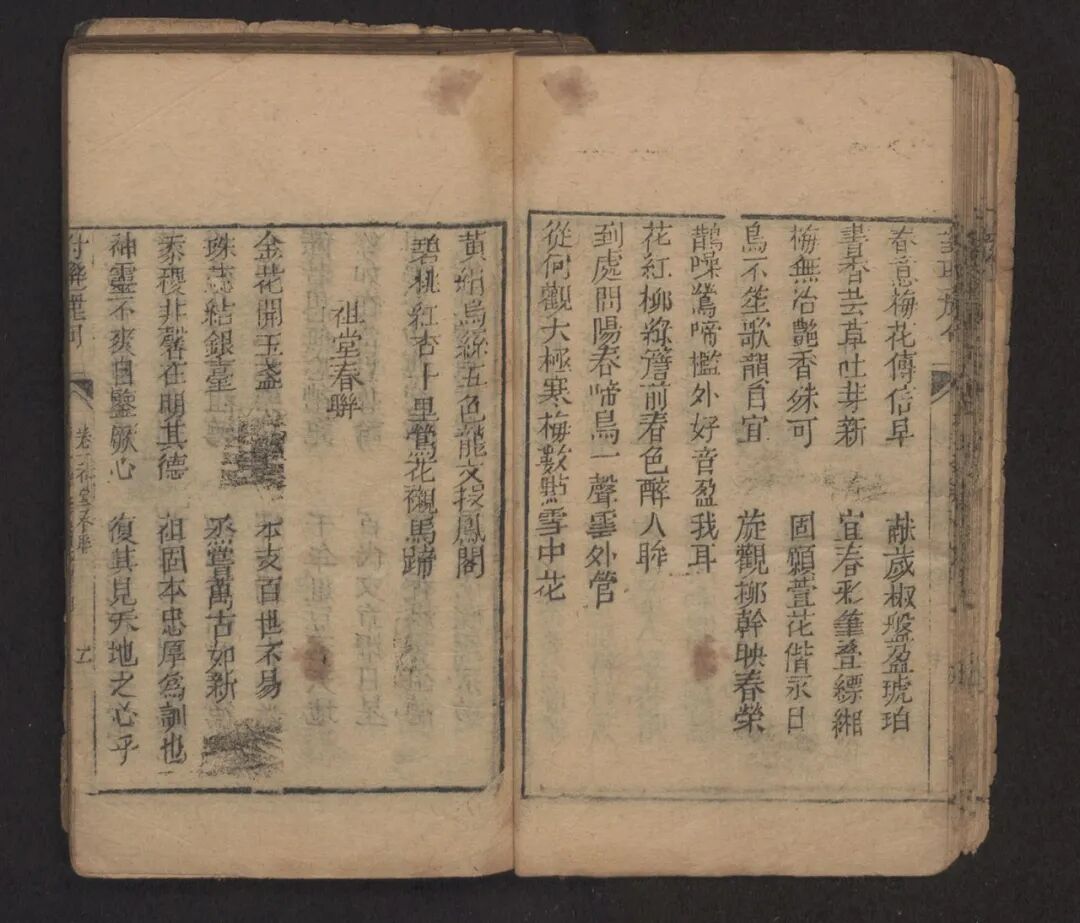 春意梅花傳信早　獻歲椒盤盈琥珀
書春芸草吐芽新　宜春彩筆疊縹緗
梅無冶艷香殊可　固願萱花偕永日
鳥不笙歌韻自宜　旋觀柳幹映春榮
鵲噪鶯啼檻外好音盈我耳
花紅柳綠簷前春色醉人眸
到處問陽春啼鳥一聲雲外管
從何觀大極寒梅數點雪中花
黃絹烏絲五色龍文投鳳閣
碧桃紅杏十里鶯花襯馬蹄
祖堂春聯
金花開玉盞　本支百世不易
珠蕊結銀臺　烝嘗萬古如新
黍稷非馨在明其德　祖固本忠厚為訓也
神靈不爽自鑒厥心　復其見天地之心乎
卷二